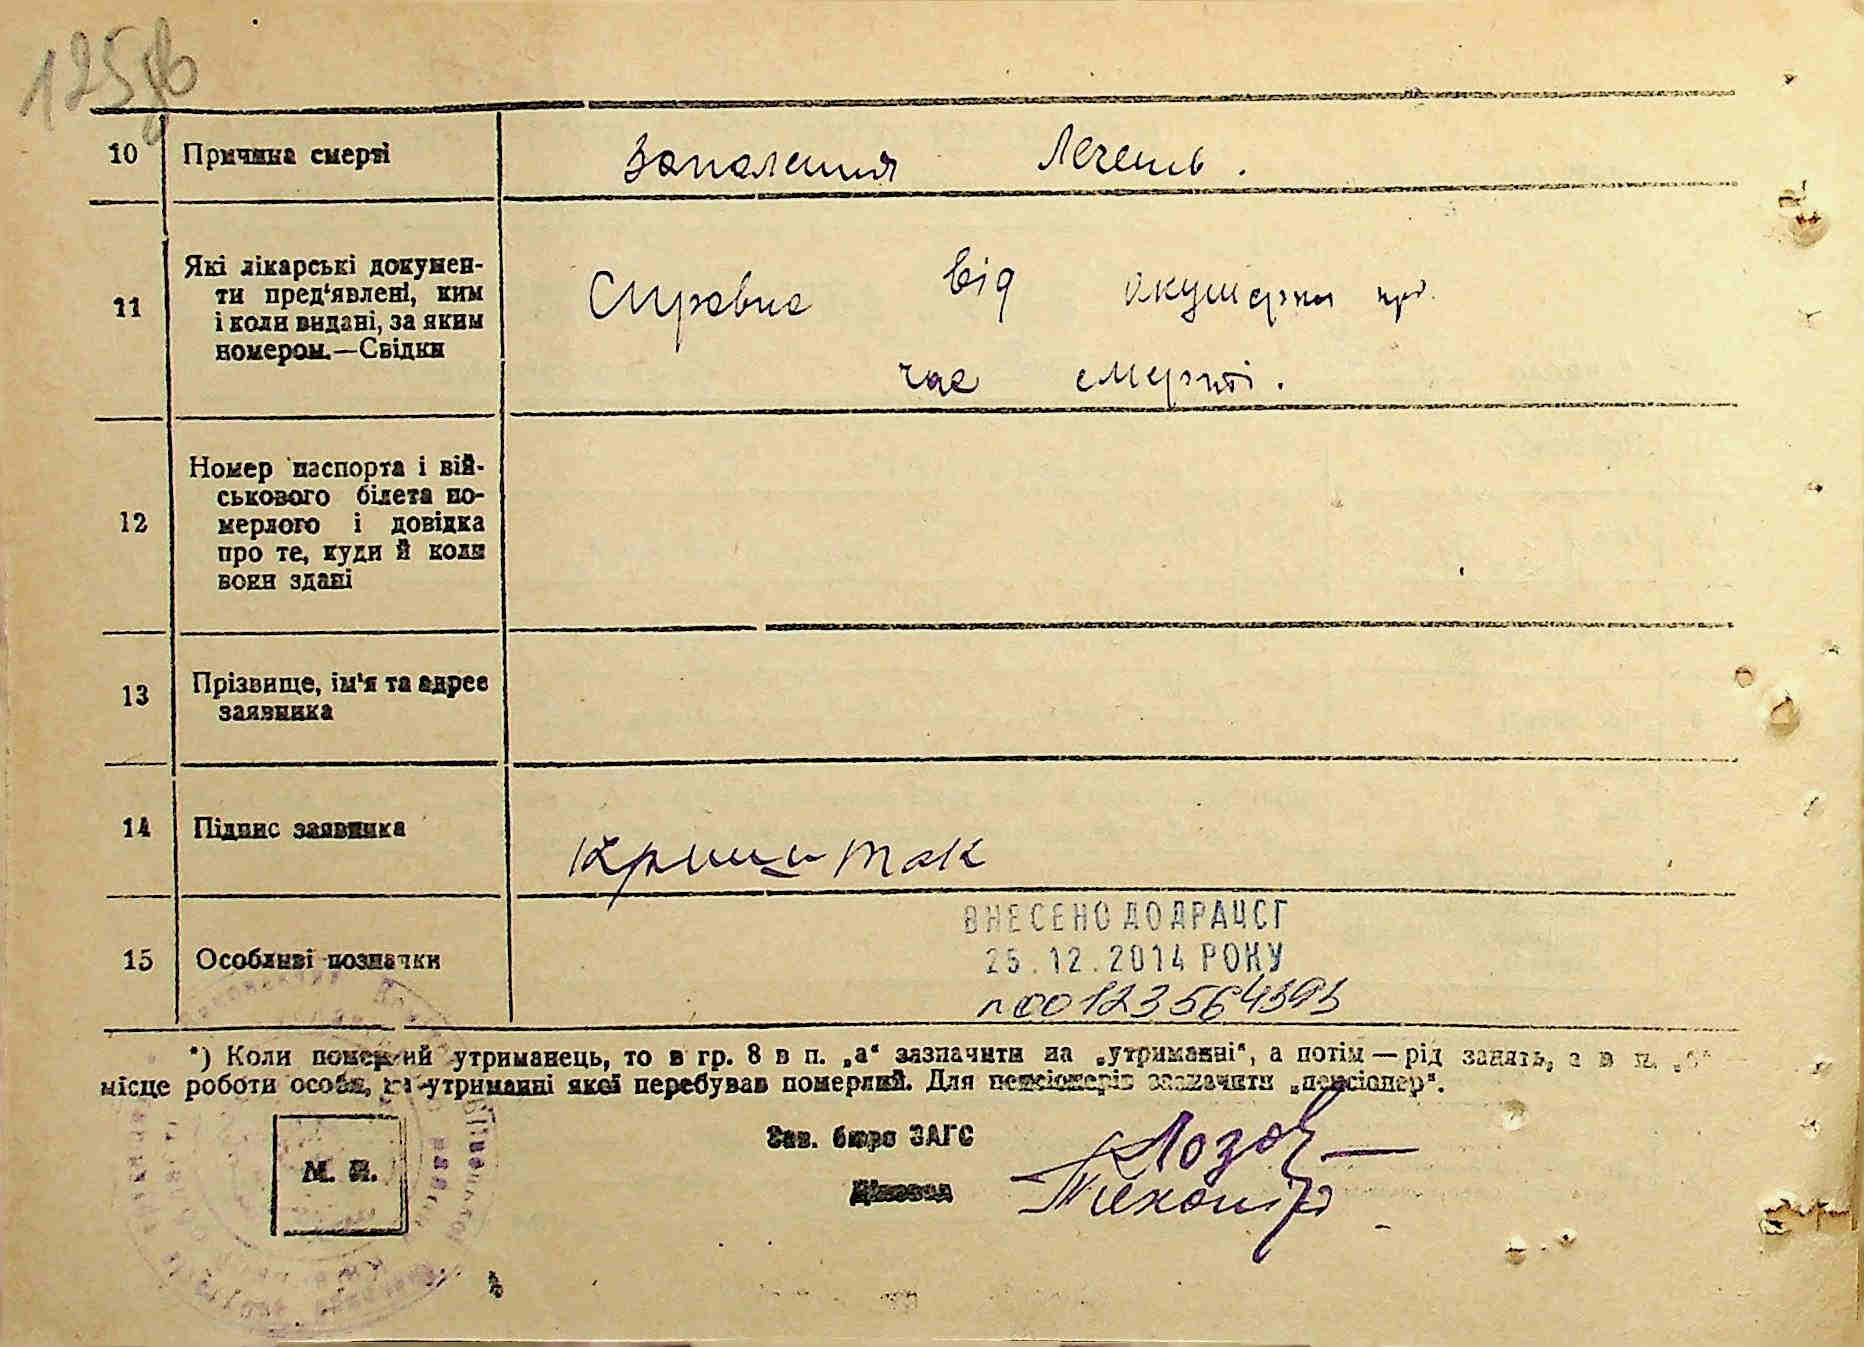 125 зв
10 Причина смерті Запалення Легень.
11 Які лікарські докумен-
ти пред'явлені, ким
і коли видані, за яким
номером.—Свідки
Справка від акушерки про
час смерті.
12 Номер паспорта і вій-
ськового білета по-
мерлого і довідка
про те, куди й коли
вони здані
13 Прізвище, ім'я та адрес
заявника
14 Підпис заявника
15 Особливі позначки
ВНЕСЕНО ДО ДРАЦСГ
25.12.2014 РОКУ
*) Коли померлий утриманець, то в гр. 8 в п. „а“ зазначити на „утриманні“, а потім — рід занять, а в п. „б“
місце роботи особи, на утриманні якої перебував померлий. Для пенсіонерів зазначити „пенсіонер“.
Зав. бюро ЗАГС
М. П.
Діловод